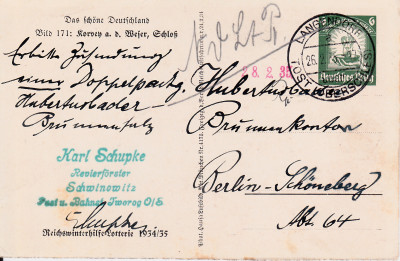 Das schöne Deutschland
Bild 171: Korvey a. d. Weser, Schloß
Erbitte Zusendung
einer Doppelpackg.
Hubertusbader
Brunnensalz
Karl Schupke
Revierförster
Schwinowitz
Post u. Bahnst. Tworog O/S.
Schupke
Reichswinterhilfe-Lotterie 1934/35
28.2.35
LANGENDORF
26.
(POST) OBERSCH
6
Deutsches Reich
Hubertusbader
Brunnenkontor
Berlin-Schöneberg
Abt. 64